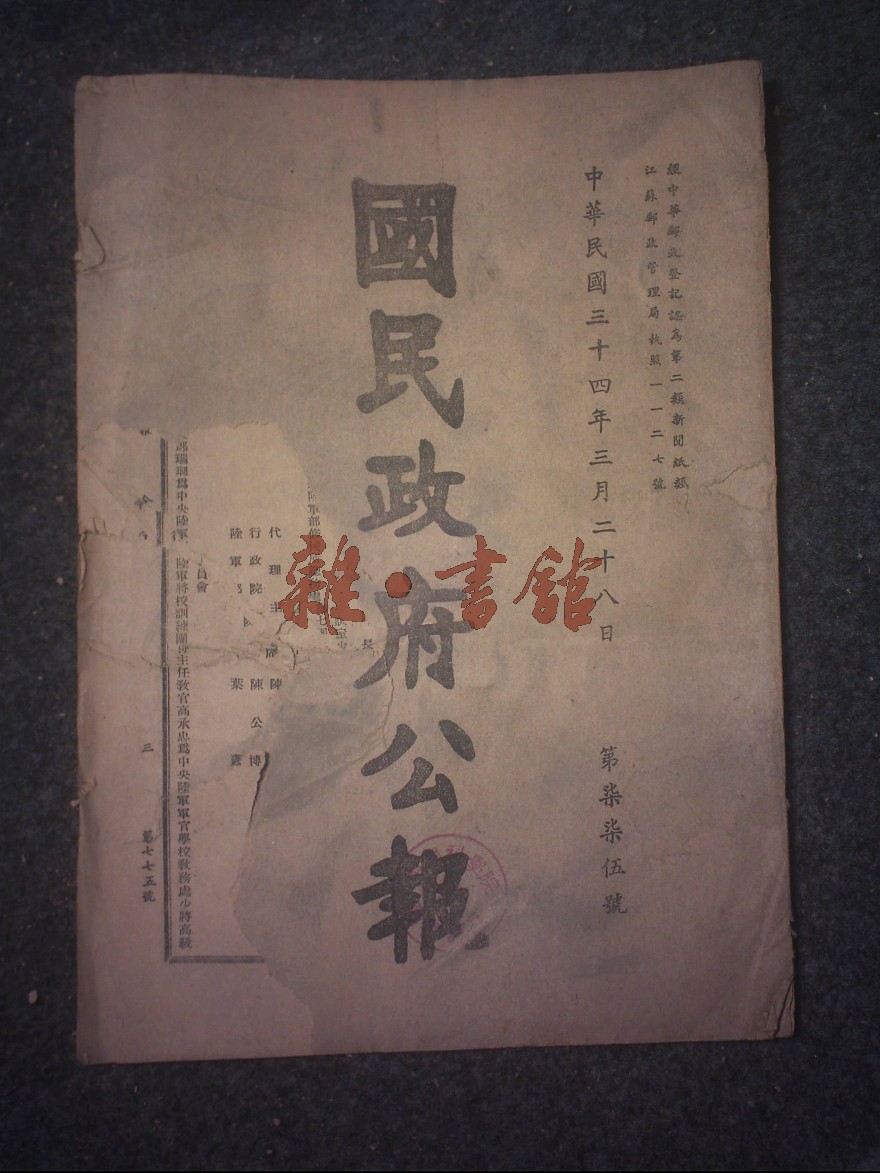 經中華郵政登記認為第二類新聞紙類
江蘇郵政管理局執照一一二七號
中華民國三十四年三月二十八日
第柒柒伍號
國民政府公報
雜·書館
長
代理主席陳公博
行政院
陳公博
陸軍部
葉蓬
員會
陸軍將校訓練團
主任教官高承忠爲中央陸軍軍官學校教務處少將高級
爲中央陸軍
三
第七七五號